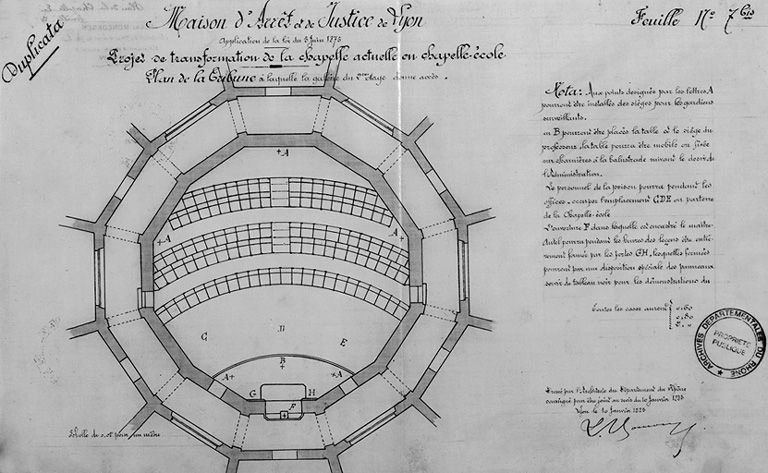 Duplicata
Maison d'Arrêt et de Justice de Lyon
Feuille N° 7 bis
Application de la loi du 5 Juin 1875
Projet de transformation de la chapelle actuelle en chapelle-école
Plan de la Tribune à laquelle la galerie du 2me étage donne accès.
Nota: Aux points désignés par les lettres A
pourront être installés des sièges pour les gardiens
surveillants.
en B pourront être placés la table et le siège du
professeur, la table pourra être mobile ou fixée
sur charnières à la balustrade suivant le désir de
l'Administration.
Le personnel de la prison pourra pendant les
offices, occuper l'emplacement CDE au parterre
de la Chapelle-école
L'ouverture F dans laquelle est encastré le maître-
autel pourra pendant les heures des leçons être entiè-
rement fermée par les portes GH, lesquelles fermées
pourront par une disposition spéciale des panneaux
servir de tableau noir pour les démonstrations du
Toutes les cases auront
0.60
0.80
A
A
A
C
D
E
B
A
A
G
H
F
ARCHIVES DEPARTEMENTALES DU RHONE
PROPRIETE
PUBLIQUE
Dressé par l'Architecte du Département du Rhône
soussigné pour être joint au devis du 10 Janvier
Lyon le 10 Janvier
Echelle de pour un mètre